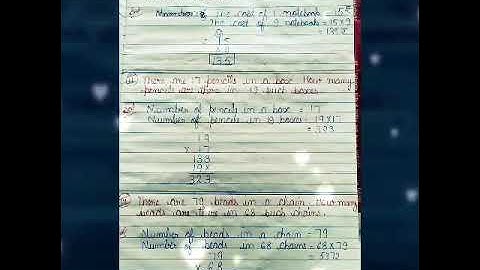 Number The cost of 1 notebook = 15
The cost of 9 notebooks = 15 × 9
= 135
9
135
There are 17 pencils in a box. How many
pencils are there in 19 such boxes.
Number of pencils in a box = 17
Number of pencils in 19 boxes = 19×17
= 323
19
× 17
133
19×
323
There are 79 beads in a chain. How many
beads are there in 68 such chains.
Number of beads in a chain = 79
Number of beads in 68 chains = 68×79
= 5372
79
× 68